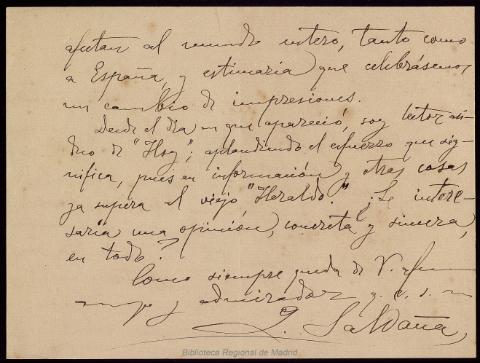 afectan al mundo entero, tanto como
a España, y estimaría que celebrásemos
un cambio de impresiones.
Desde el día en que apareció, soy lector asi-
duo de "Hoy"; aplaudiendo el esfuerzo que sig-
nifica, pues en información y otras cosas
ya supera al viejo "Heraldo." ¿Se intere-
saría una opinión, concreta y sincera,
en todo?
Como siempre queda de V. afmo
amigo y admirador q. e. s. m
Q. Saldaña,
Biblioteca Regional de Madrid